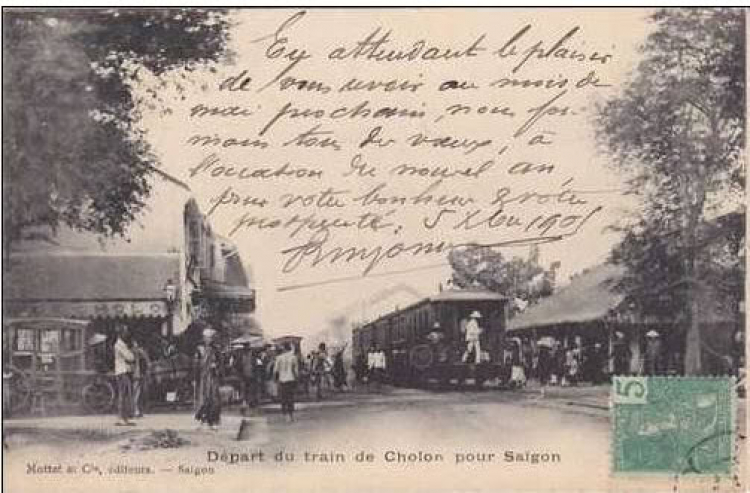 En attendant le plaisir
de vous revoir au mois de
mai prochain, nous for-
mons tous des vœux, à
l'occasion du nouvel an,
pour votre bonheur & votre
prospérité. 5 Xbre 1905
Départ du train de Cholon pour Saïgon
Mottet & Cie, éditeurs. — Saïgon
5